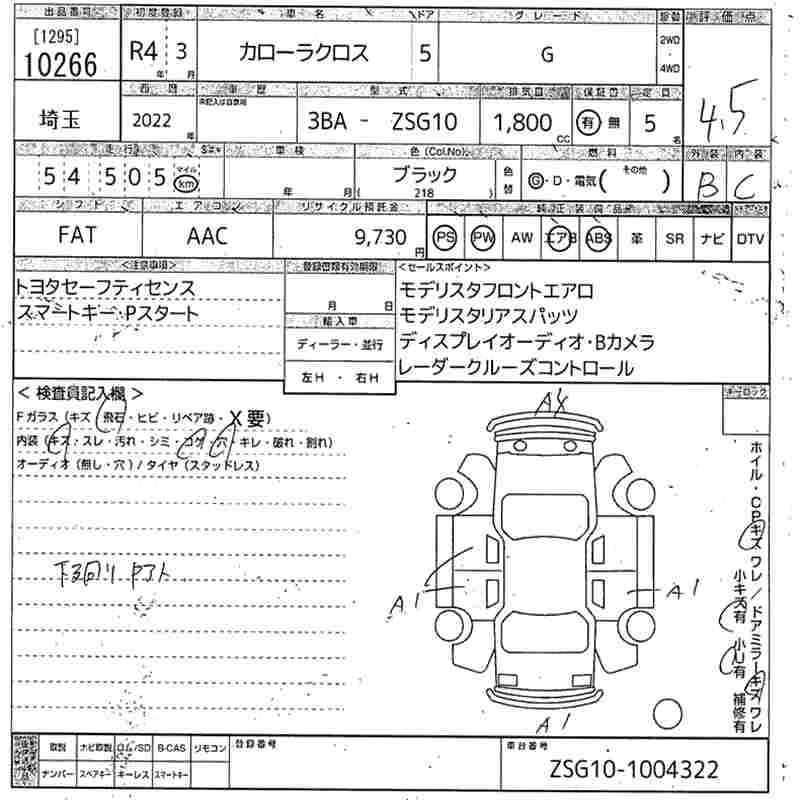 出品番号 初度登録 車名 ドア グレード 駆動 評価点
[1295]
10266 R4年 3月 カローラクロス 5 G 2WD・4WD 4.5
西暦 車歴 型式 排気量 保証書 定員
未記入は自家用
埼玉 2022年 3BA - ZSG10 1,800cc 有 無 5名
走行 車検 色(Col.No) 燃料 外装 内装
54,505 マイル km 年 月 ブラック (218) 色替 G・D・電気(その他) B C
シフト エアコン リサイクル預託金 純正装備品
FAT AAC 9,730円 PS PW AW エアB ABS 革 SR ナビ DTV
<注意事項> 登録書類有効期限 <セールスポイント>
トヨタセーフティセンス 月 日 モデリスタフロントエアロ
スマートキー Pスタート 輸入車 モデリスタリアスパッツ
ディーラー・並行 ディスプレイオーディオ・Bカメラ
左H・右H レーダークルーズコントロール
<検査員記入欄>
Fガラス(キズ 飛石・ヒビ・リペア跡・X要)
内装(キズ・スレ・汚れ・シミ・コゲ・穴・キレ・破れ・割れ)
オーディオ(無し・穴)/タイヤ(スタッドレス)
下廻り
A1
A1
A1
ホイル・CPキズワレ/ドアミラーキズワレ
小キズ有 小U有 補修有
取説 ナビ取説 ロム/SD B-CAS リモコン 登録番号 車台番号
ナンバー スペアキー キーレス スマートキー ZSG10-1004322